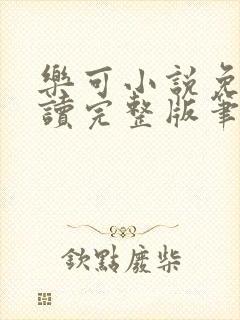 樂可小說免
讀完整版筆
欽點廢柴